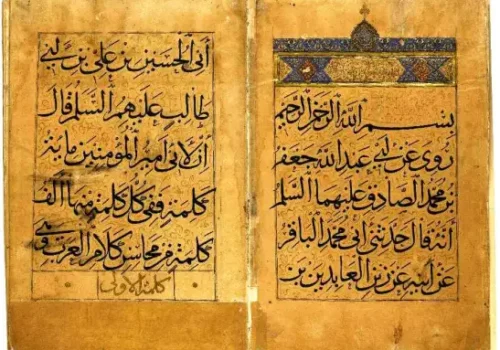 بسم الله الرحمن الرحيم
روى عن ابي عبد الله جعفر
بن محمد الصادق عليهما السلم
انه قال حدثني ابي محمد الباقر
عن ابيه عن زين العابدين بن
أبي الحسين بن علي بن أبي
طالب عليهم السلم قال
ان لابي امير المؤمنين ماية
كلمة ففي كل كلمة منها الف
كلمة من محاسن كلام العرب
كلمة الاولى